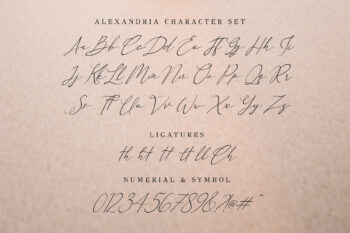 ALEXANDRIA CHARACTER SET
Aa Bb Cc Dd Ee Ff Gg Hh Ii
Jj Kk Ll Mm Nn Oo Pp Qq Rr
Ss Tt Uu Vv Ww Xx Yy Zz
LIGATURES
th ht tt tl ll Ch
NUMERIAL & SYMBOL
0123456789&?!@#